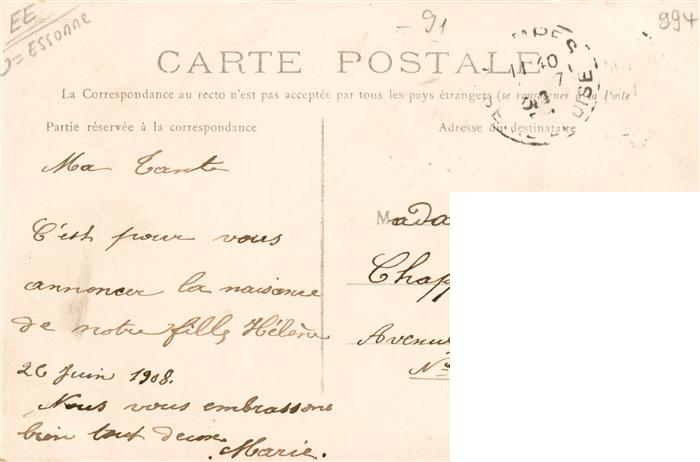 EE
= ESSONNE
- 91
994
CARTE POSTALE
La Correspondance au recto n'est pas acceptée par tous les pays étrangers (se renseigner à la Poste
Partie réservée à la correspondance
Adresse du destinataire
Ma Tante
C'est pour vous
annoncer la naisance
de notre fille Hélène
26 Juin 1908.
Nous vous embrassons
bien tout deux
Marie.
Mada
Chapp
Avenu